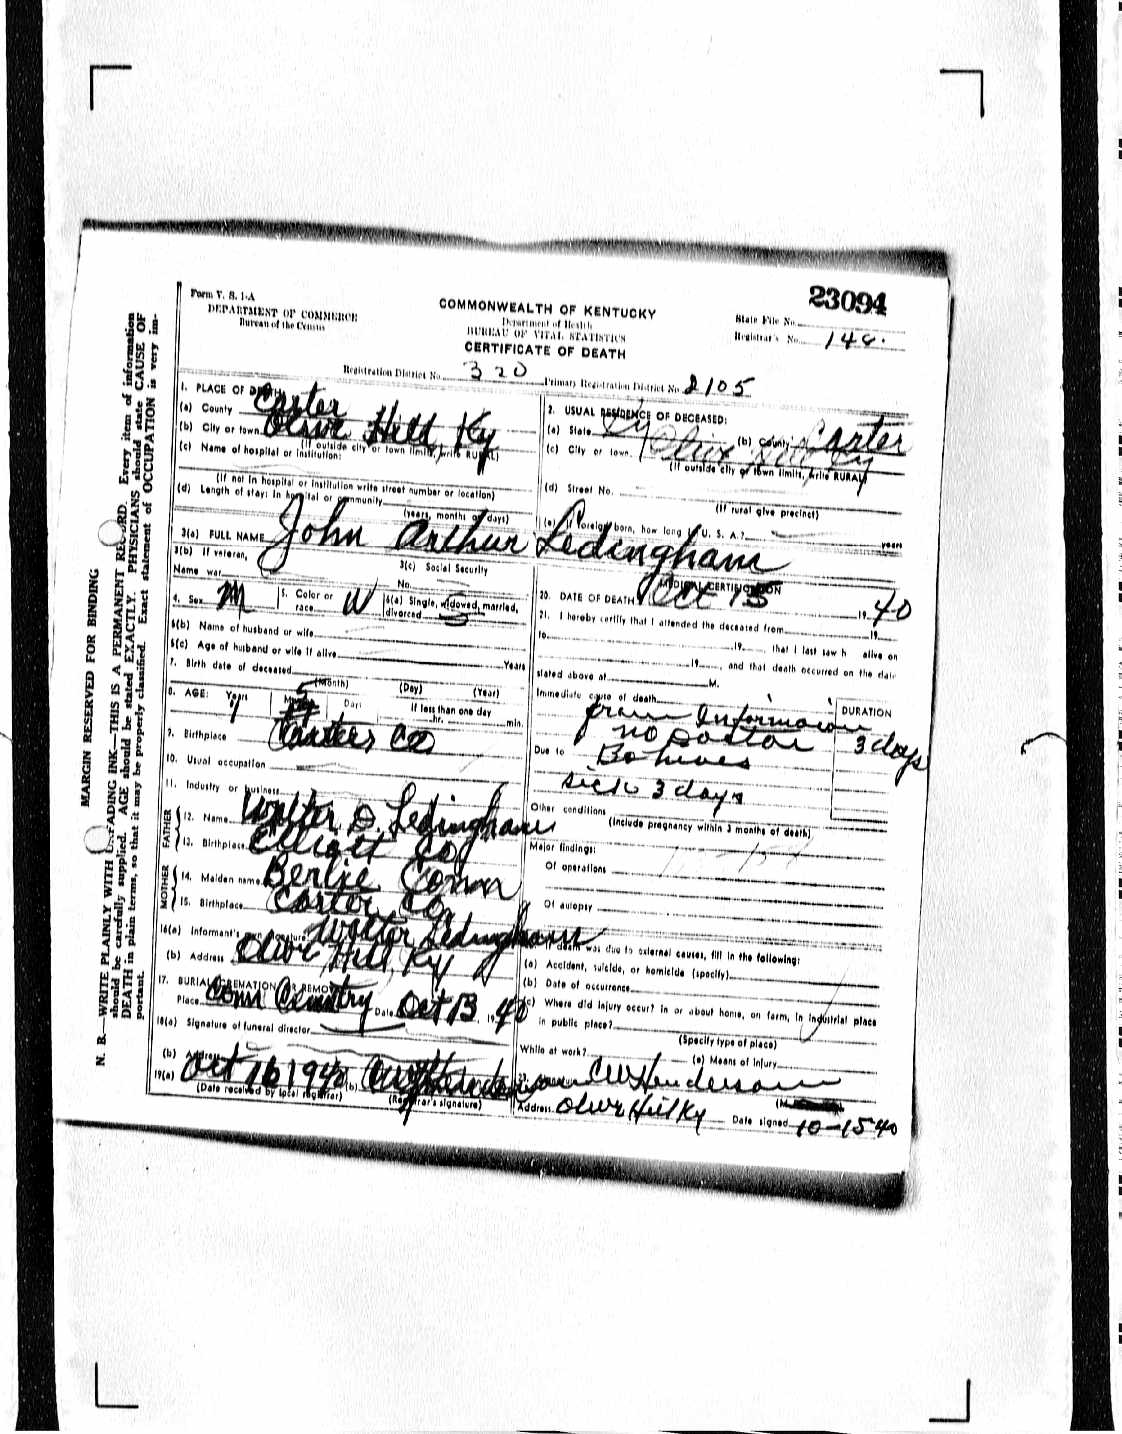 23094
Form V. S. 1-A
DEPARTMENT OF COMMERCE
Bureau of the Census
COMMONWEALTH OF KENTUCKY
Department of Health
BUREAU OF VITAL STATISTICS
CERTIFICATE OF DEATH
State File No.
Registrar's No. 148.
Registration District No. 320
Primary Registration District No. 2105
MARGIN RESERVED FOR BINDING
N. B.—WRITE PLAINLY WITH UNFADING INK—THIS IS A PERMANENT RECORD. Every item of information
should be carefully supplied. AGE should be stated EXACTLY. PHYSICIANS should state CAUSE OF
DEATH in plain terms, so that it may be properly classified. Exact statement of OCCUPATION is very im-
portant.
1. PLACE OF DEATH:
(a) County Carter
(b) City or town Olive Hill Ky
(If outside city or town limits, write RURAL)
(c) Name of hospital or institution:
(If not in hospital or institution write street number or location)
(d) Length of stay: In hospital or community
(years, months or days)
2. USUAL RESIDENCE OF DECEASED:
(a) State Ky (b) County Carter
(c) City or town Olive Hill Ky
(If outside city or town limits, write RURAL)
(d) Street No.
(If rural give precinct)
(e) If foreign born, how long U. S. A.? years
3(a) FULL NAME John Arthur Ledingham
3(b) If veteran,
Name war
3(c) Social Security
No.
4. Sex M 5. Color or race W 6(a) Single, widowed, married, divorced S
6(b) Name of husband or wife
6(c) Age of husband or wife if alive Years
7. Birth date of deceased
(Month) (Day) (Year)
8. AGE: Years Months 5 Days If less than one day
hr. min.
9. Birthplace Carter Co
10. Usual occupation
11. Industry or business
FATHER
12. Name Walter D. Ledingham
13. Birthplace Elliott Co
MOTHER
14. Maiden name Bertie Conn
15. Birthplace Carter Co
16(a) Informant's own signature Walter Ledingham
(b) Address Olive Hill Ky
17. BURIAL, CREMATION OR REMOVAL
Place Conn Cemetry Date Oct 13 1940
18(a) Signature of funeral director
(b) Address
19(a) Oct 16 1940 (b) CW Henderson
(Date received by local registrar) (Registrar's signature)
MEDICAL CERTIFICATION
20. DATE OF DEATH Oct 15 1940
21. I hereby certify that I attended the deceased from 19
to 19, that I last saw h alive on
19, and that death occurred on the date
stated above at M.
Immediate cause of death
DURATION
from Informacon
no Doctor 3 days
Due to Bo hives
sick 3 days
Other conditions
(Include pregnancy within 3 months of death)
Major findings:
Of operations
Of autopsy
If death was due to external causes, fill in the following:
(a) Accident, suicide, or homicide (specify)
(b) Date of occurrence
(c) Where did injury occur? In or about home, on farm, in industrial place
in public place?
(Specify type of place)
While at work? (e) Means of injury
CW Henderson
Address Olive Hill Ky Date signed 10-15 40